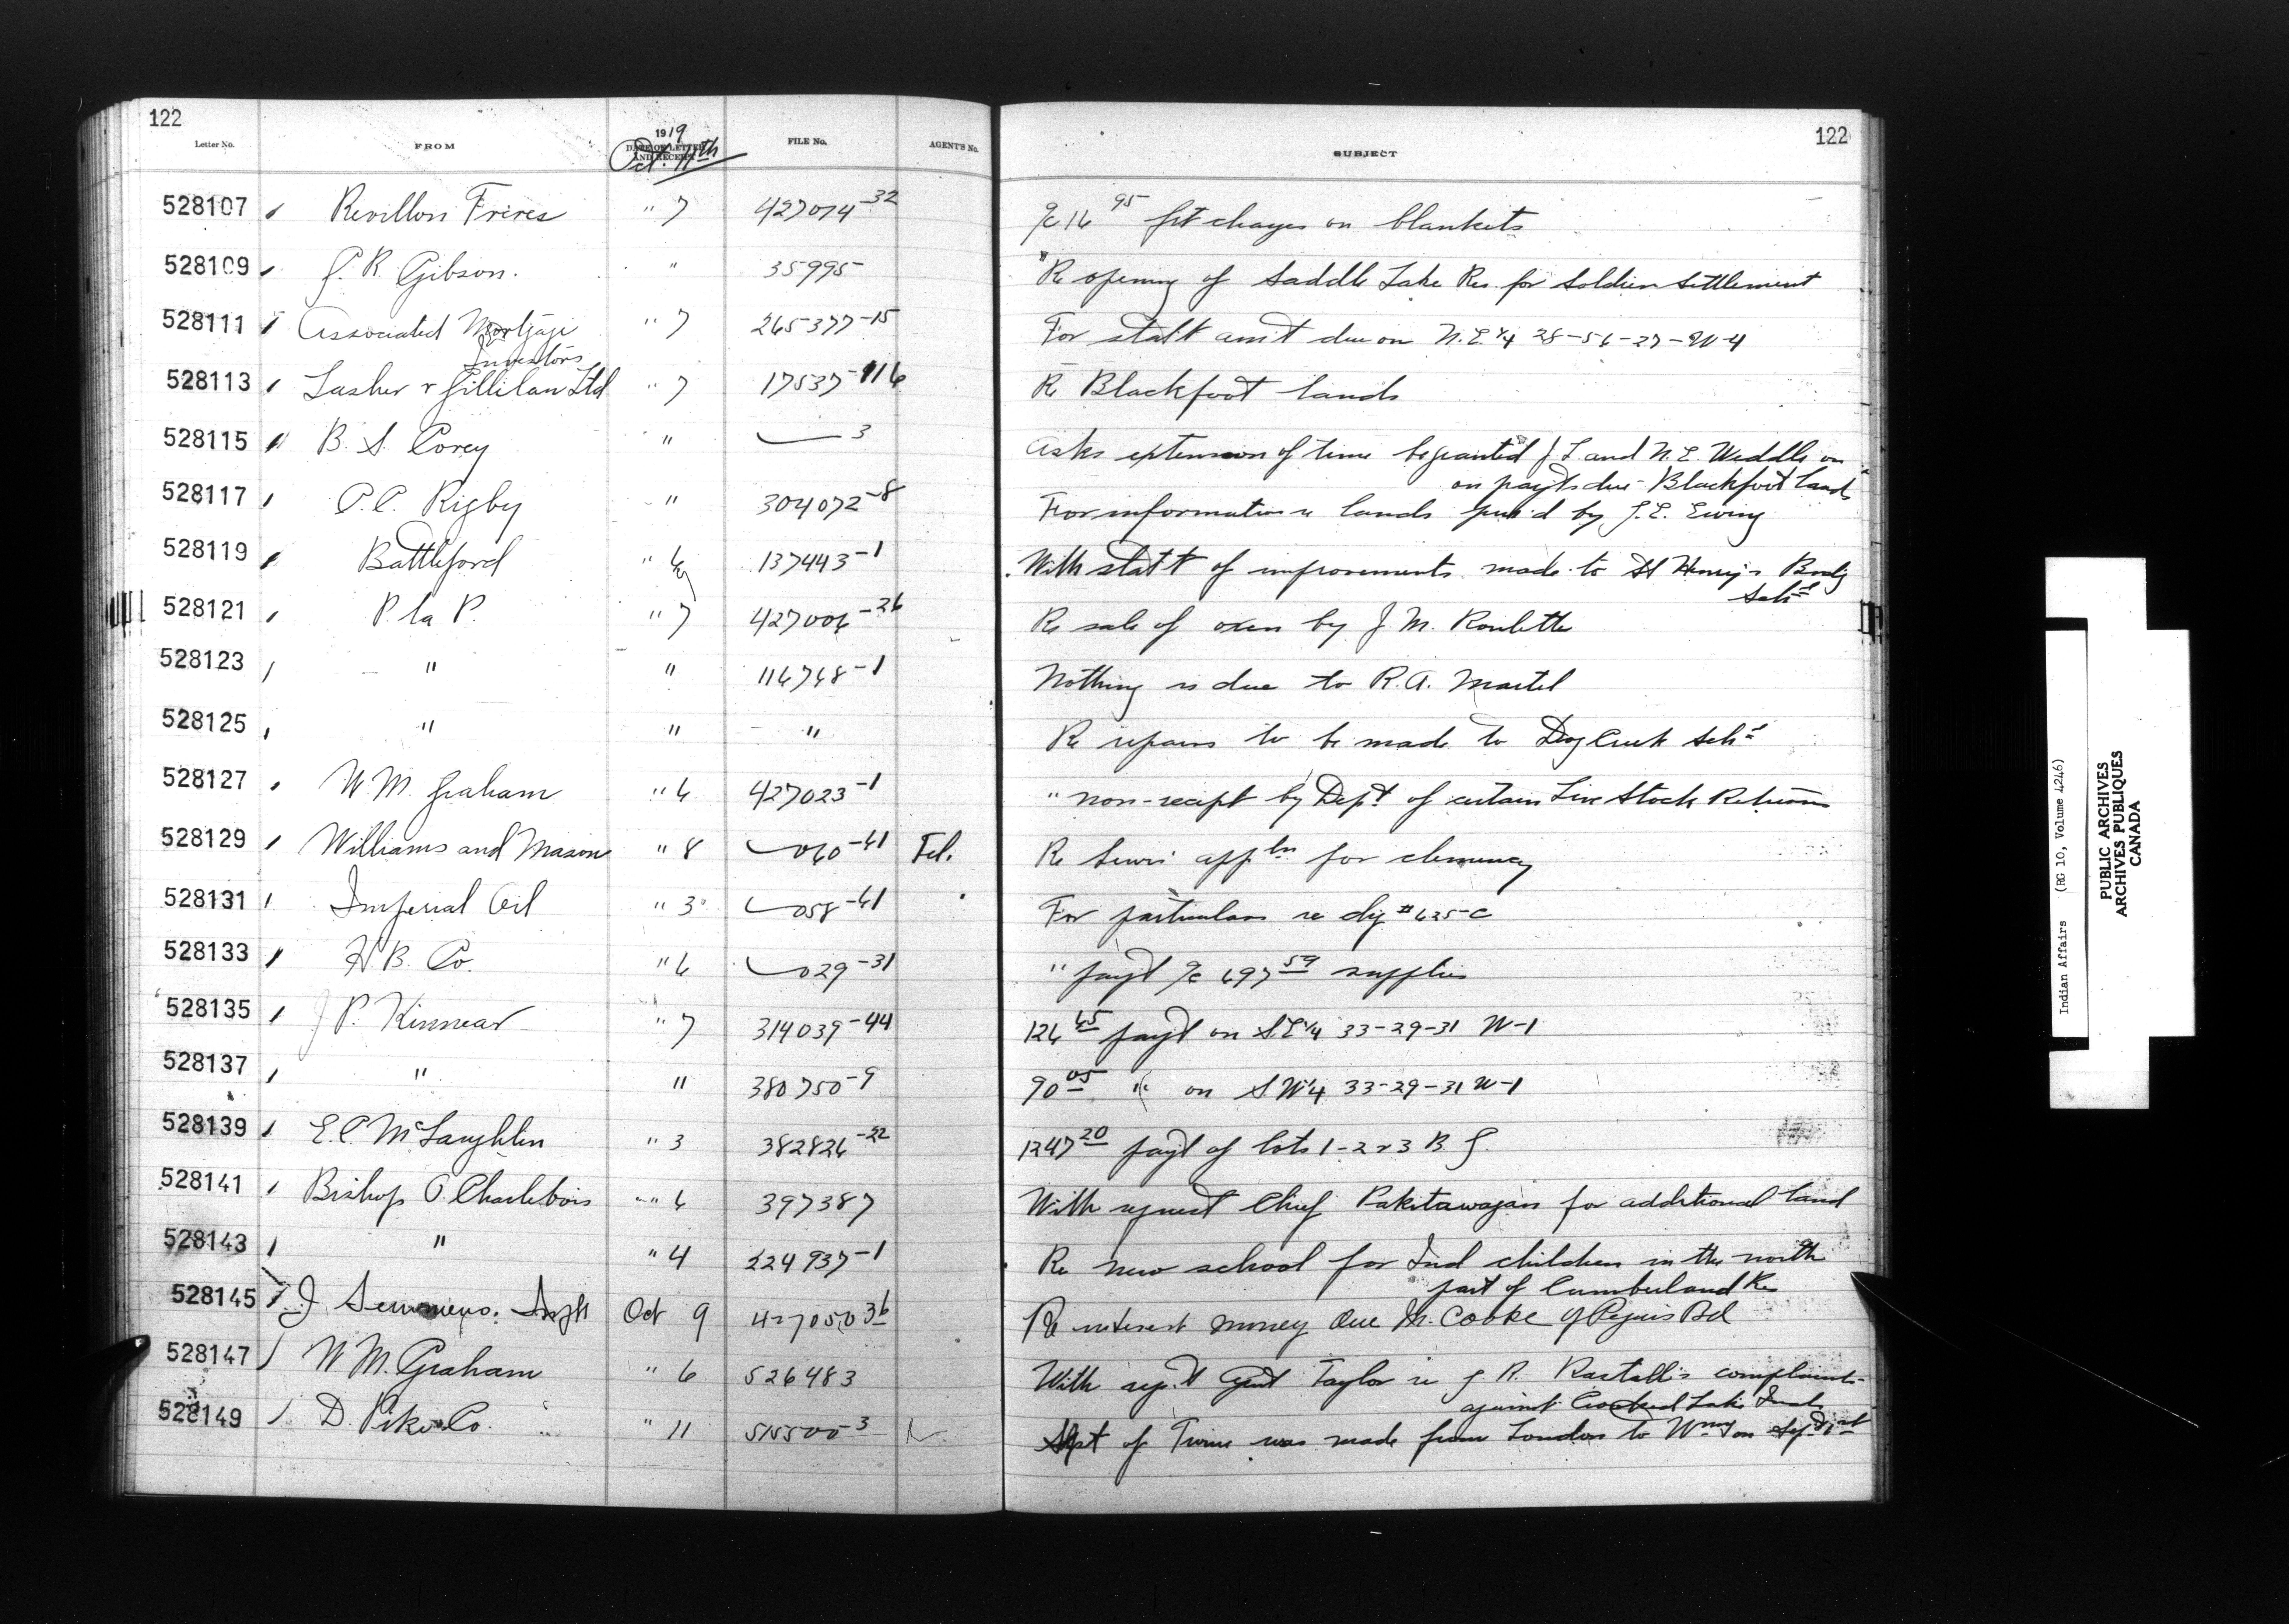 122
Letter No. FROM 1919 DATE OF LETTER AND RECEIPT FILE No. AGENT'S No. SUBJECT 122
Oct. 11th
528107 Revillon Freres " 7 427074-32 a/c 16 95 frt charges on blankets
528109 J. R. Gibson. " 35995 Re opening of Saddle Lake Res. for Soldier Settlement
528111 Associated Mortgage " 7 265377-15 For statt amt due on N.E. 1/4 28-56-27-W-4
Investors
528113 Lasher & Gillilan Ltd " 7 17537-116 Re Blackfoot lands
528115 B. S. Corey " 3 Asks extension of time be granted J L. and N. E. Weddle on
on payts due Blackfoot lands
528117 C. C. Rigby " 304072-8 For information re lands purd by J. E. Ewing
528119 Battleford " 6 137443-1 With statt of improvements made to St Henry's Bodg
Schl
528121 P la P. " 7 427006-26 Re sale of oxen by J. M. Roulette
528123 " " 116748-1 Nothing is due to R. A. Martel
528125 " " " Re repairs to be made to Dog Creek Schl
528127 W. M. Graham " 6 427023-1 " non-receipt by Dept of certain Live Stock Returns
528129 Williams and Mason " 8 060-41 Tel. Re Lewis' appln for clemency
528131 Imperial Oil " 3 058-41 For particulars re chq # 635-C
528133 H. B. Co. " 6 029-31 " payt a/c 697 59 supplies
528135 J P. Kinnear " 7 314039-44 126 45 payt on S.E 1/4 33-29-31 W-1
528137 " " 380750-9 90 05 " on S W 1/4 33-29-31 W-1
528139 E. C. McLaughlin " 3 382826-22 1247 20 payt of lots 1-2 & 3 B. G.
528141 Bishop O. Charlebois " 6 397387 With request Chief Pakitawagan for additional land
528143 " " 4 224937-1 Re new school for Ind children in the north
part of Cumberland Res
528145 J Semmens. Oct 9 427050 36 Re interest money due M. Cooke of Peguis Bd
528147 W M. Graham " 6 526483 With rept Agent Taylor re J R. Rastall's complaints
against Crooked Lake Inds
528149 D. Pike Co. " 11 515500-3 Shpt of Twine was made from London to Wpg on Sep. 21st
Indian Affairs (RG 10, Volume 4246)
PUBLIC ARCHIVES
ARCHIVES PUBLIQUES
CANADA